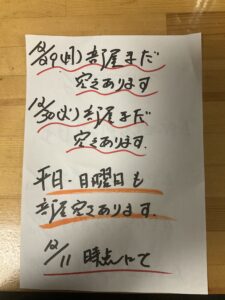 12/29(月)部屋まだ
空きあります
12/30(火)部屋まだ
空きあります.
平日・日曜日も
部屋空きあります.
12/11 時点にて